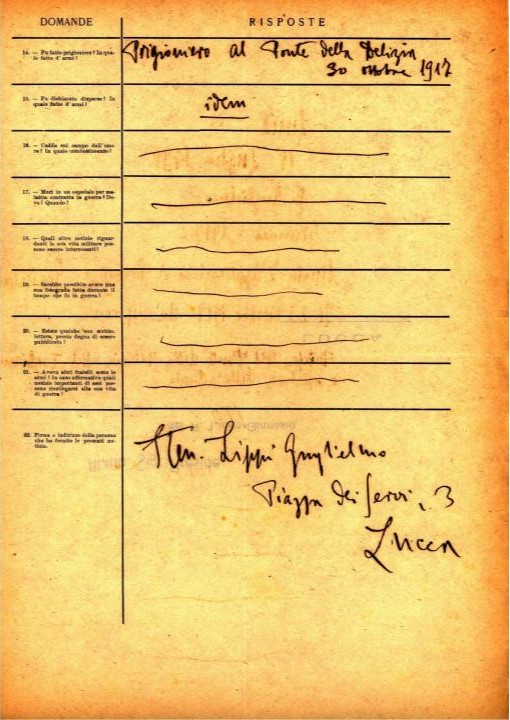 DOMANDE
RISPOSTE
14. — Fu fatto prigioniero? In qua-
le fatto d'armi?
Prigioniero al Ponte della Delizia
30 ottobre 1917
15. — Fu dichiarato disperso? In
quale fatto d'armi?
idem
16. — Cadde sul campo dell'ono-
re? In quale combattimento?
17. — Morì in un ospedale per ma-
lattia contratta in guerra? Do-
ve? Quando?
18. — Quali altre notizie riguar-
danti la sua vita militare pos-
sono essere interessanti?
19. — Sarebbe possibile avere una
sua fotografia fatta durante il
tempo che fu in guerra?
20. — Esiste qualche suo scritto,
lettera, poesia degna di essere
pubblicata?
21. — Aveva altri fratelli sotto le
armi? In caso affermativo quali
notizie importanti di essi pos-
sono ricollegarsi alla sua vita
di guerra?
22. Firma e indirizzo della persona
che ha fornito le presenti no-
tizie.
Lippi Guglielmo
Piazza dei Servi, 3
Lucca